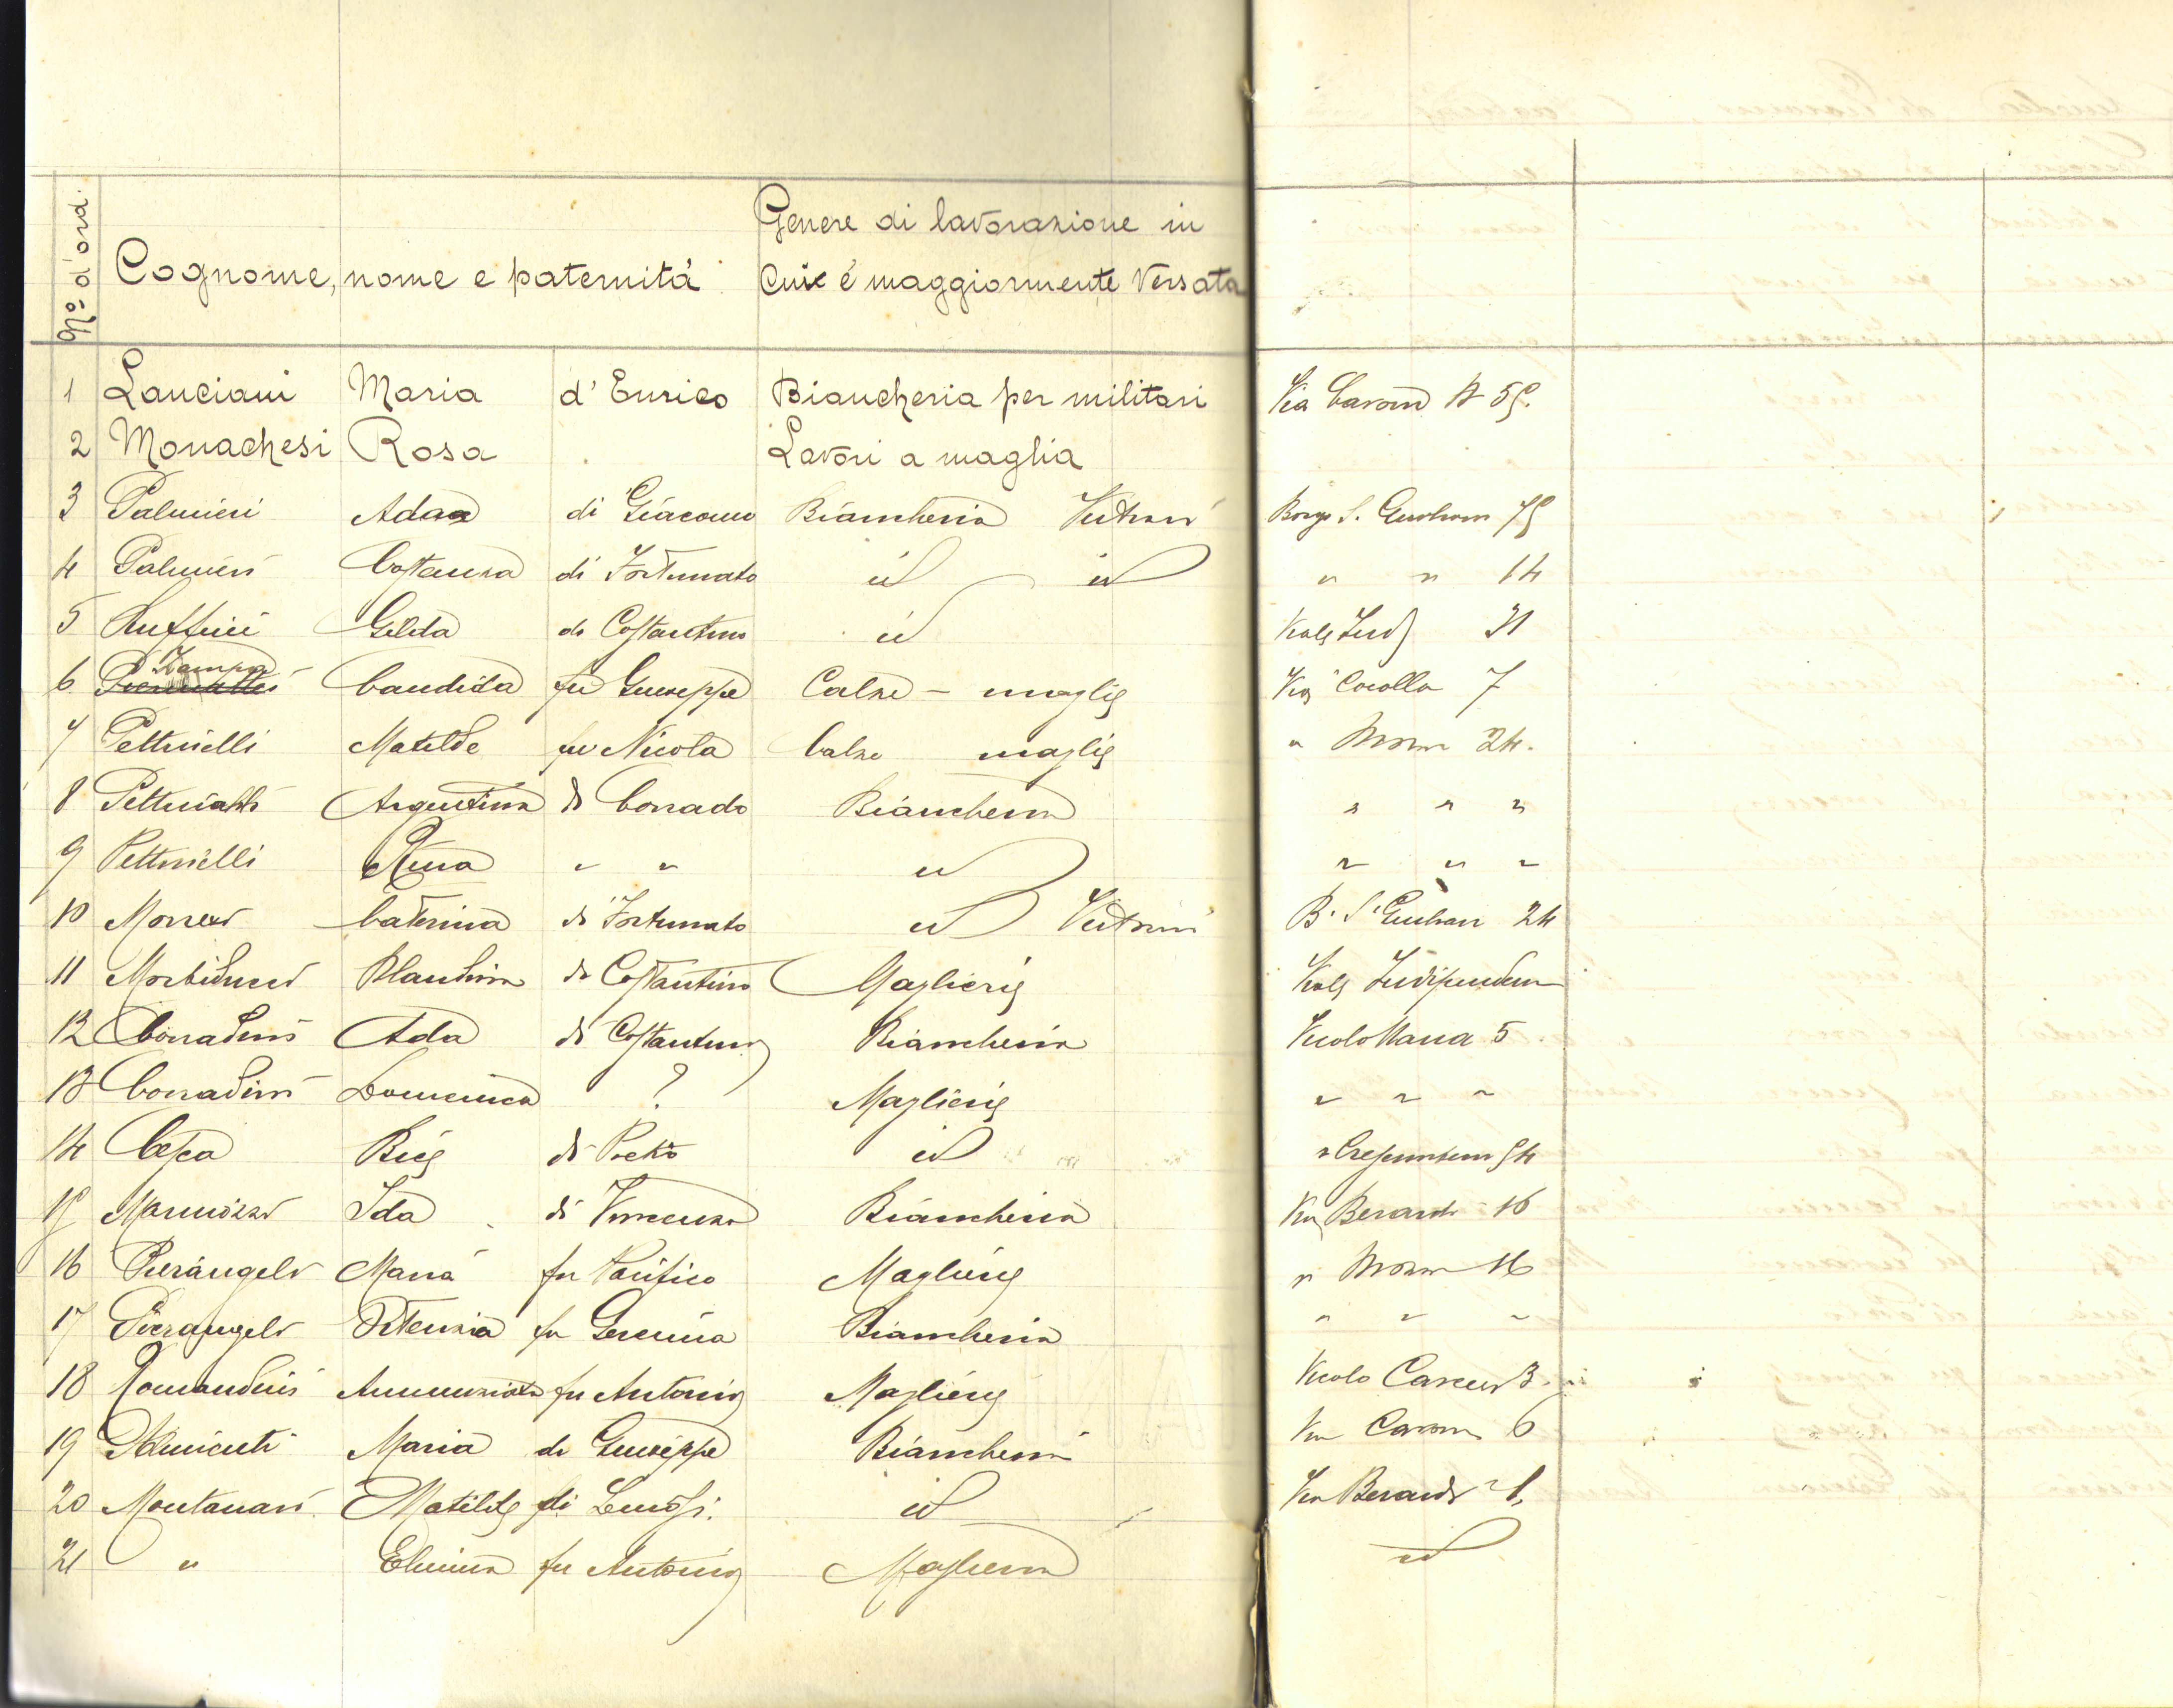 Genere di lavorazione in
N.º d'ord. Cognome, nome e paternità cui è maggiormente versata
1 Lanciani Maria d'Enrico Biancheria per militari Via Cavour N 59.
2 Monachesi Rosa Lavori a maglia
3 Palmieri Ada di Giacomo Biancheria Vestiari Borgo S. Giuliano 79
4 Palmieri Costanza di Fortunato id id " " 14
5 Ruffini Gilda di Costantino id Viale Ind 31
Zampa
6 Candida fu Giuseppe Calze - maglie Via Cocolla 7
7 Pettinelli Matilde fu Nicola Calze maglie " 24.
8 Pettinelli Argentina di Corrado Biancheria " " "
9 Pettinelli " " id " " "
10 Caterina di Fortunato id B. S. Giuliano 24
11 Morbiducci Blandina di Costantino Maglierie Viale Indipenden
12 Corradini Ada di Costantino Biancheria Vicolo 5
13 Corradini Domenica ? Maglierie " " "
14 Cesca Bice di id "
15 Marinozzi Ida di Vincenzo Biancheria Via Berardi 16
16 Pierangeli Maria fu Pacifico Maglierie " 16
17 Pierangeli Ortenzia fu Geremia Biancheria " " "
18 Annunziata fu Antonio Maglierie Vicolo 3
19 Maria di Giuseppe Biancheria Via Cavour 6
20 Montanari Matilde di Luigi. id Via Berardi
21 " Elmina fu Antonio Maglieria id